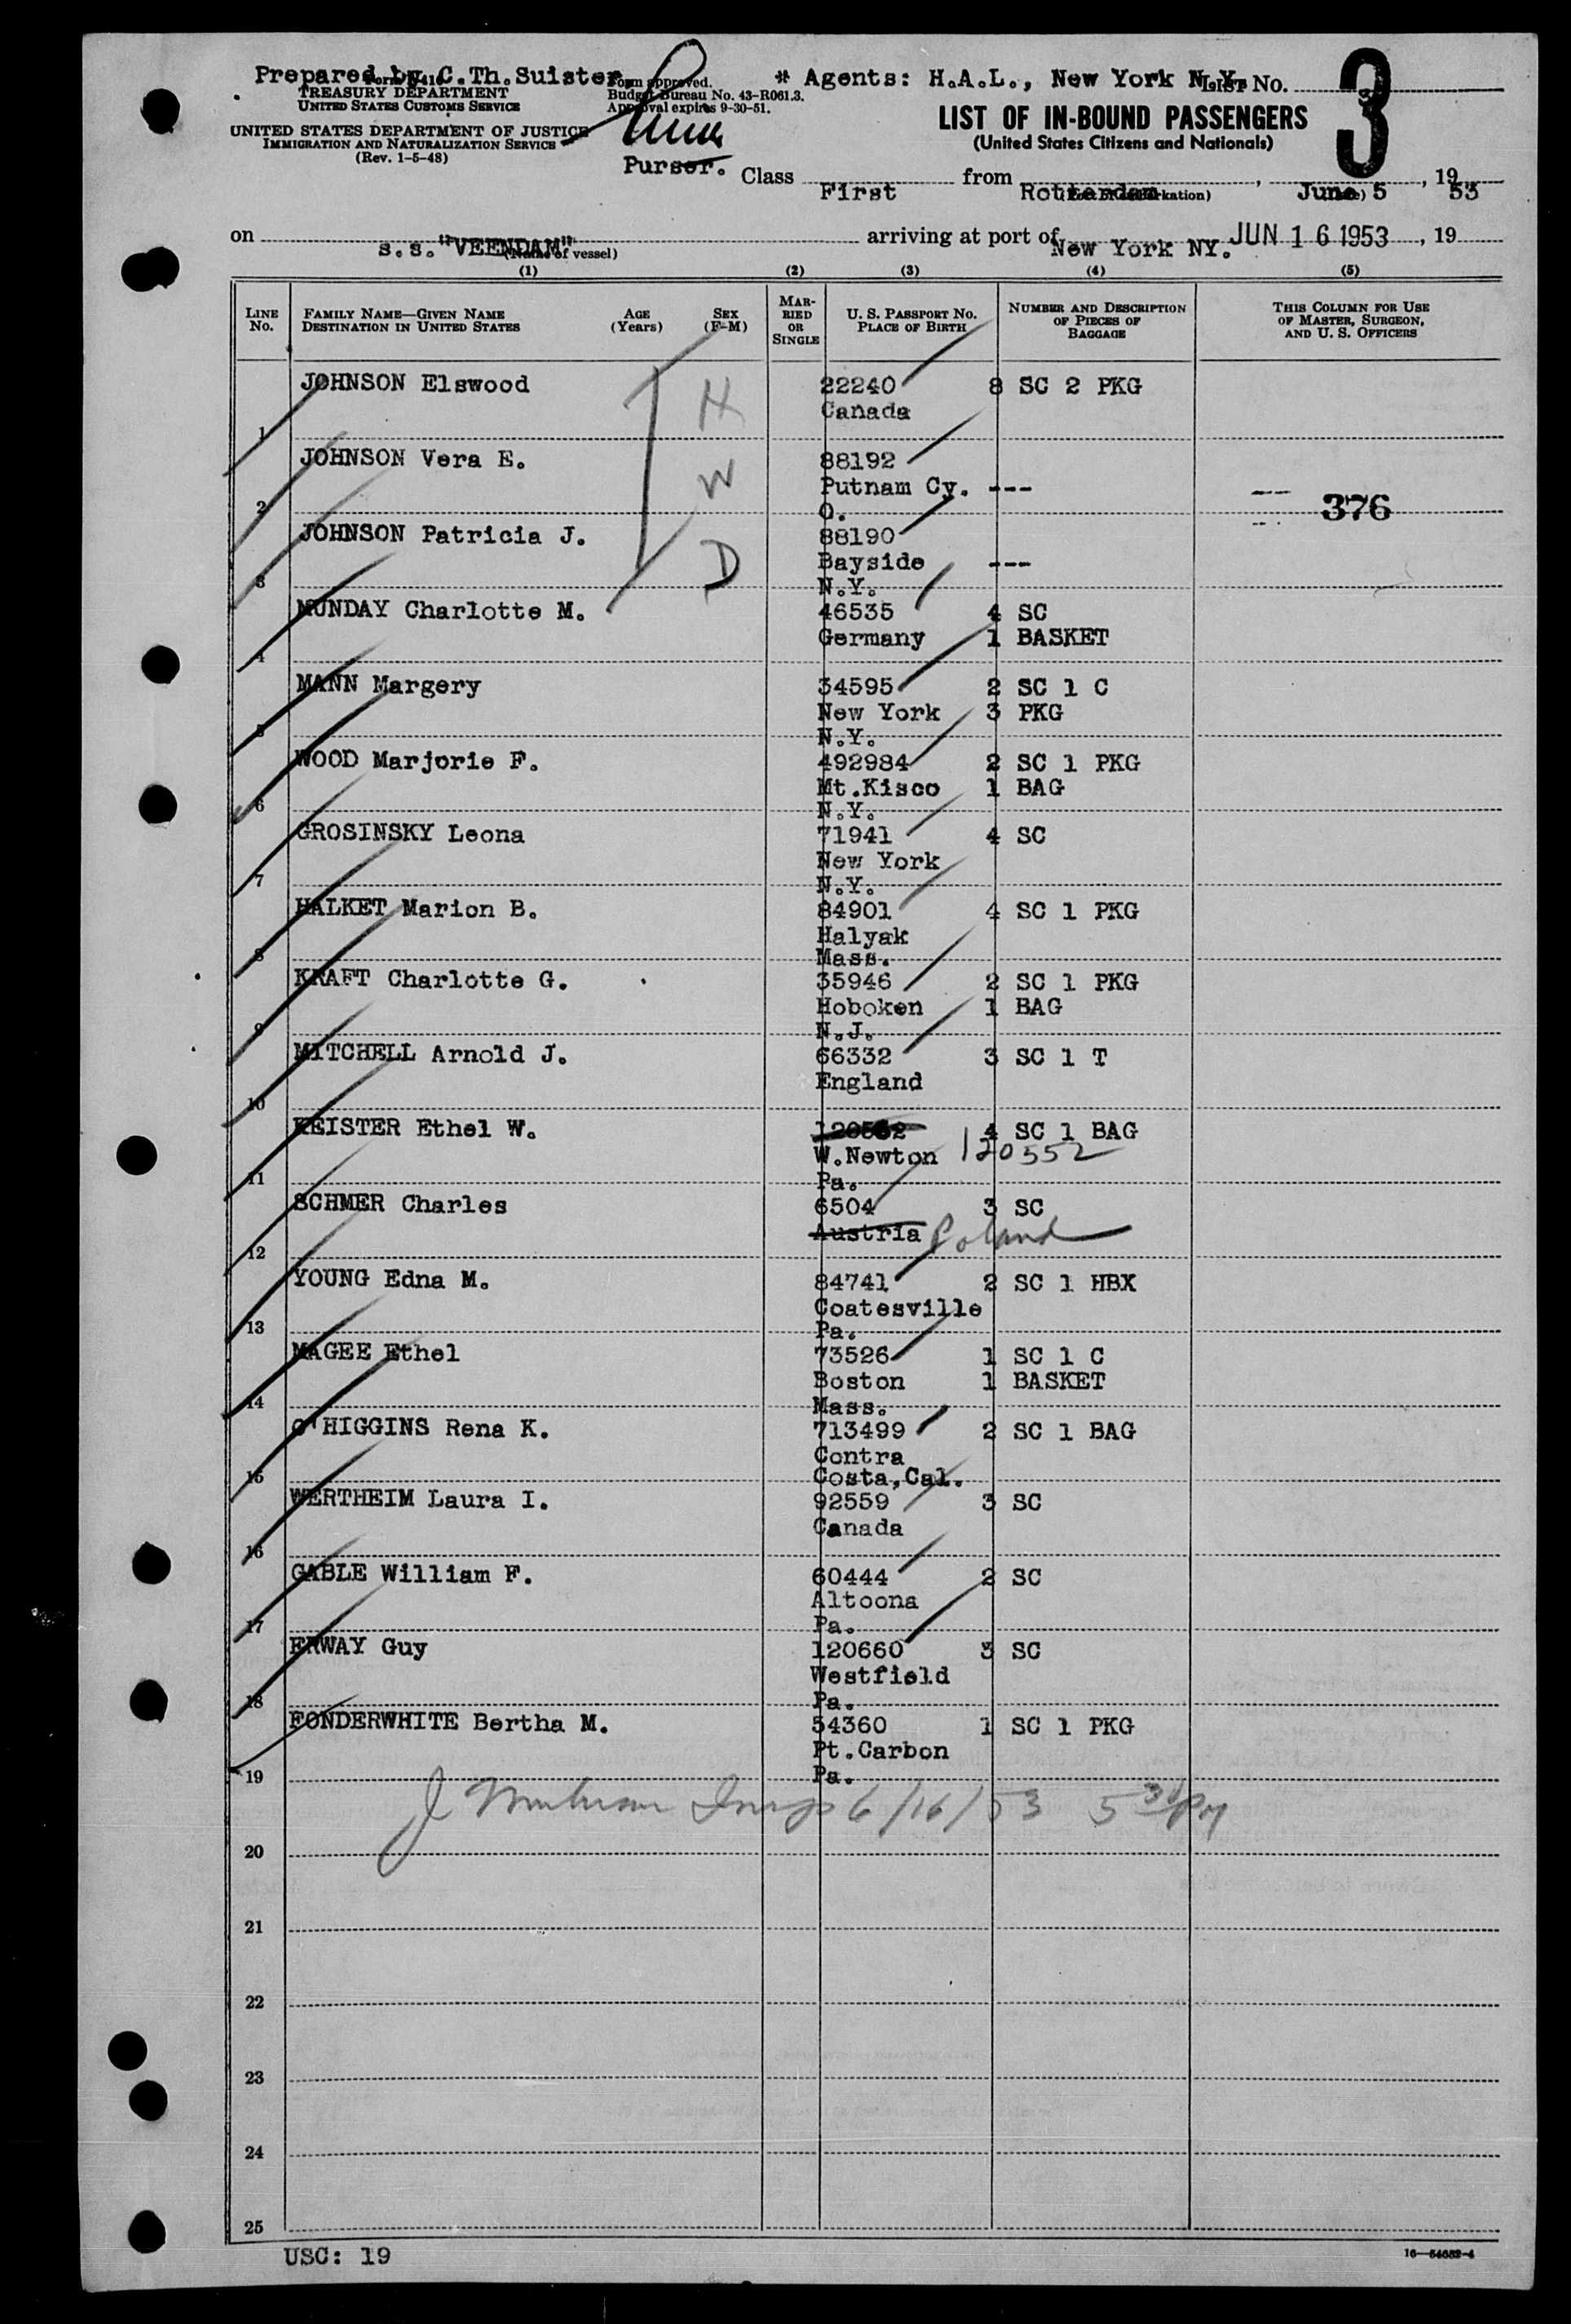 Prepared by C.Th.Suister
* Agents: H.A.L., New York N.Y.
List No.
3
TREASURY DEPARTMENT
UNITED STATES CUSTOMS SERVICE
Form approved.
Budget Bureau No. 43-R061.3.
Approval expires 9-30-51.
UNITED STATES DEPARTMENT OF JUSTICE
IMMIGRATION AND NATURALIZATION SERVICE
(Rev. 1-5-48)
Purser.
LIST OF IN-BOUND PASSENGERS
(United States Citizens and Nationals)
Class First from Rotterdam, June 5, 1953
on s.s. "VEENDAM" arriving at port of New York NY. JUN 16 1953, 19
(Name of vessel)
(1) (2) (3) (4) (5)
LINE No. FAMILY NAME—GIVEN NAME DESTINATION IN UNITED STATES AGE (Years) SEX (F-M) MARRIED OR SINGLE U. S. PASSPORT NO. PLACE OF BIRTH NUMBER AND DESCRIPTION OF PIECES OF BAGGAGE THIS COLUMN FOR USE OF MASTER, SURGEON, AND U. S. OFFICERS
JOHNSON Elswood H 22240 8 SC 2 PKG
Canada
1
JOHNSON Vera E. W 88192
Putnam Cy. ---
2 O. 376
JOHNSON Patricia J. D 88190
Bayside ---
3 N.Y.
MUNDAY Charlotte M. 46535 4 SC
Germany 1 BASKET
4
MANN Margery 34595 2 SC 1 C
New York 3 PKG
5 N.Y.
WOOD Marjorie F. 492984 2 SC 1 PKG
Mt.Kisco 1 BAG
6 N.Y.
GROSINSKY Leona 71941 4 SC
New York
7 N.Y.
HALKET Marion B. 84901 4 SC 1 PKG
Halyak
8 Mass.
KRAFT Charlotte G. 35946 2 SC 1 PKG
Hoboken 1 BAG
9 N.J.
MITCHELL Arnold J. 66332 3 SC 1 T
England
10
KEISTER Ethel W. 4 SC 1 BAG
W.Newton 120552
11 Pa.
SCHMER Charles 6504 3 SC
Austria Poland
12
YOUNG Edna M. 84741 2 SC 1 HBX
Coatesville
13 Pa.
MAGEE Ethel 73526 1 SC 1 C
Boston 1 BASKET
14 Mass.
O'HIGGINS Rena K. 713499 2 SC 1 BAG
Contra
15 Costa,Cal.
WERTHEIM Laura I. 92559 3 SC
Canada
16
GABLE William F. 60444 2 SC
Altoona
17 Pa.
ERWAY Guy 120660 3 SC
Westfield
18 Pa.
FONDERWHITE Bertha M. 54360 1 SC 1 PKG
Pt.Carbon
19 Pa.
J Insp 6/16/53 5 30 PM
20
21
22
23
24
25
USC: 19
16—54652-4